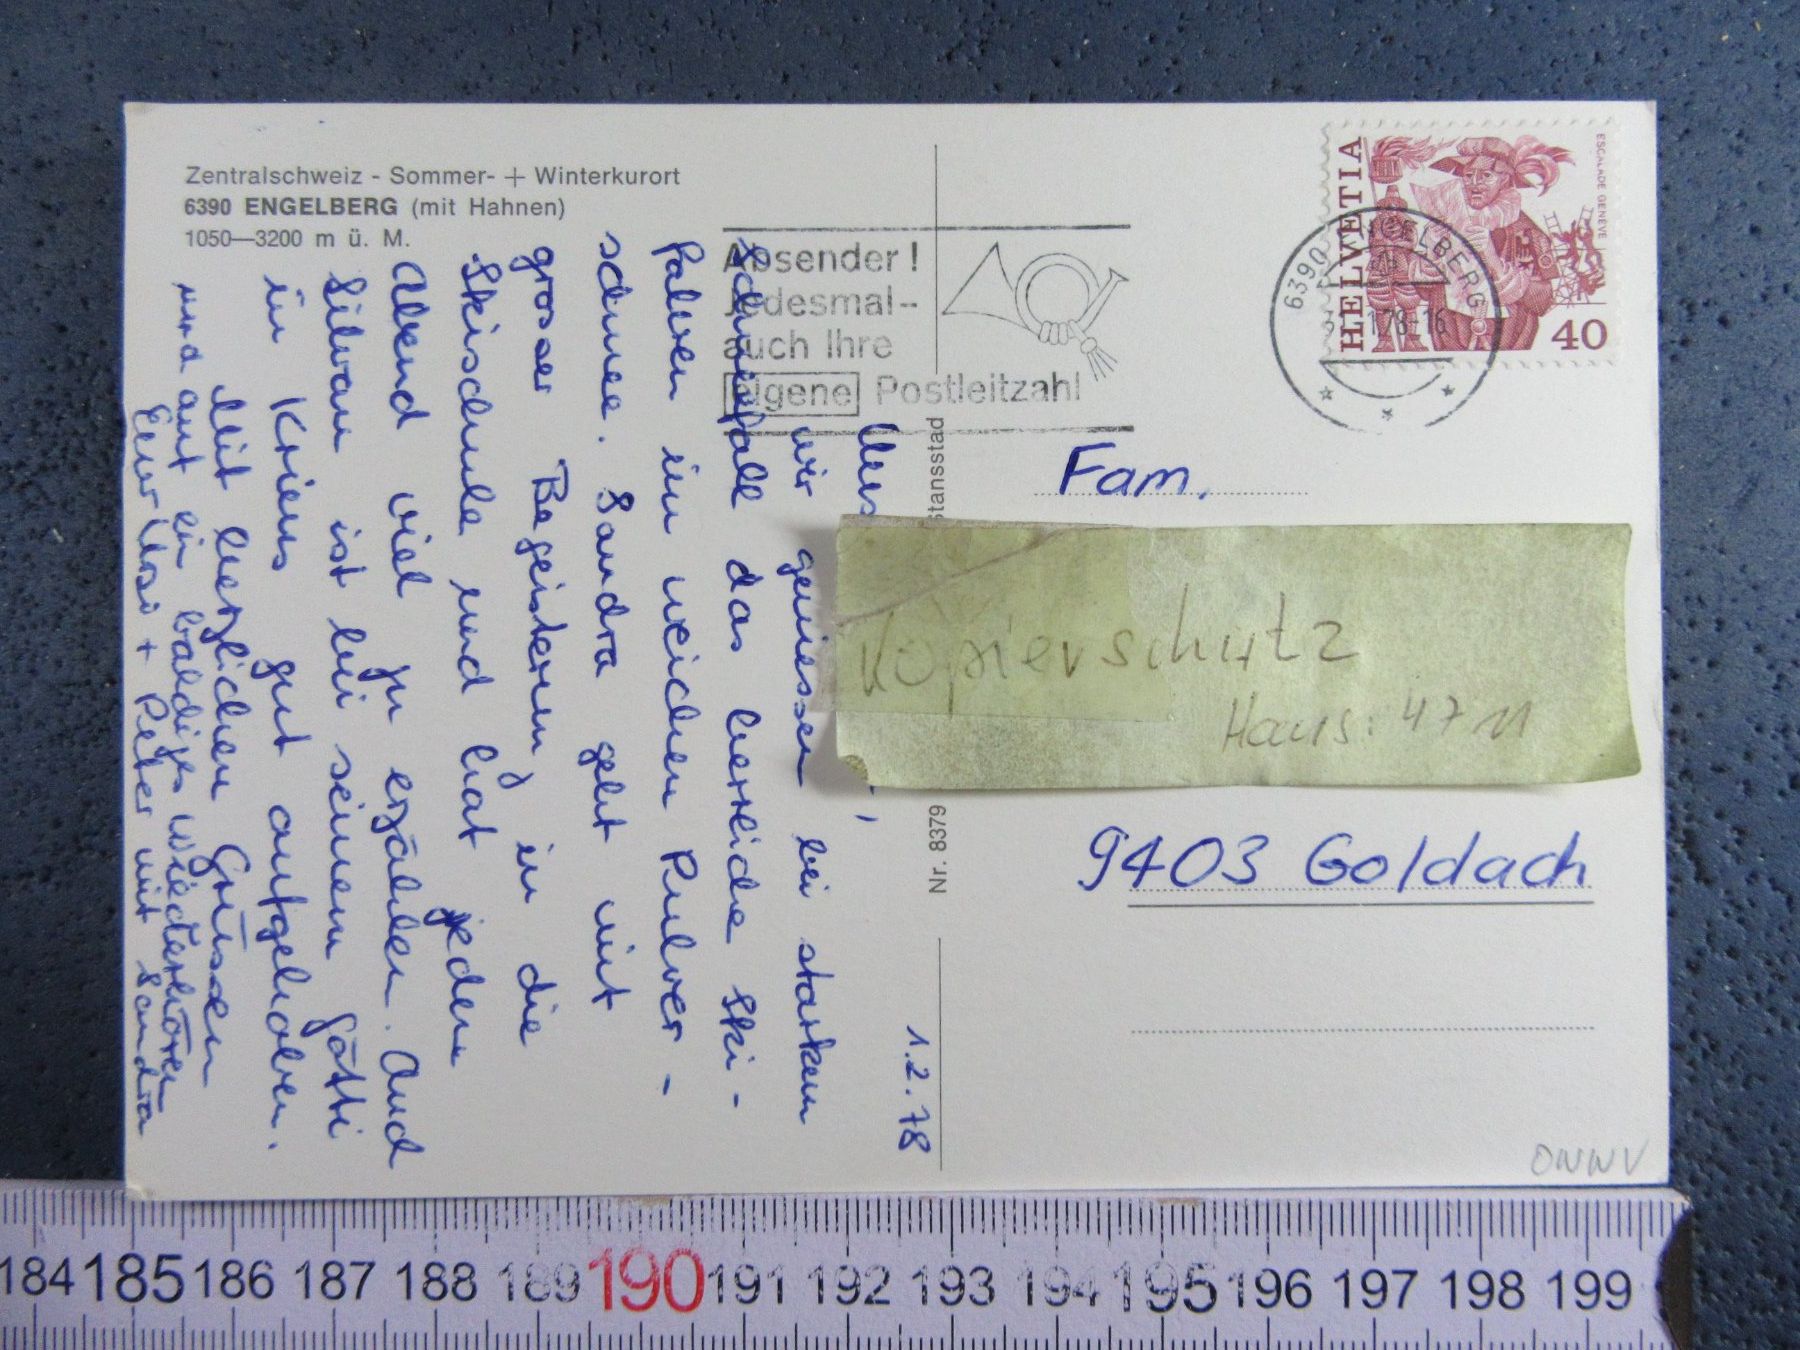 Zentralschweiz - Sommer- + Winterkurort
6390 ENGELBERG (mit Hahnen)
1050—3200 m ü. M.
Absender!
Jedesmal-
auch Ihre
eigene Postleitzahl
HELVETIA
ESCALADE GENÈVE
40
6390 ENGELBERG
Nr. 8379
stansstad
1.2.78
wir geniessen bei starkem
Schneefall das herrliche Ski-
fahren im weichen Pulver-
schnee. Sandra geht mit
grosser Begeisterung in die
Skischule und hat jeden
Abend viel zu erzählen. Und
Silvan ist bei seinem Götti
in Kriens gut aufgehoben.
Mit herzlichen Grüssen
und auf ein baldiges Wiederhören
Eure Ursi + Peter mit Sandra
Fam.
Kopierschutz
Haus: 4711
9403 Goldach
184 185 186 187 188 189 190 191 192 193 194 195 196 197 198 199